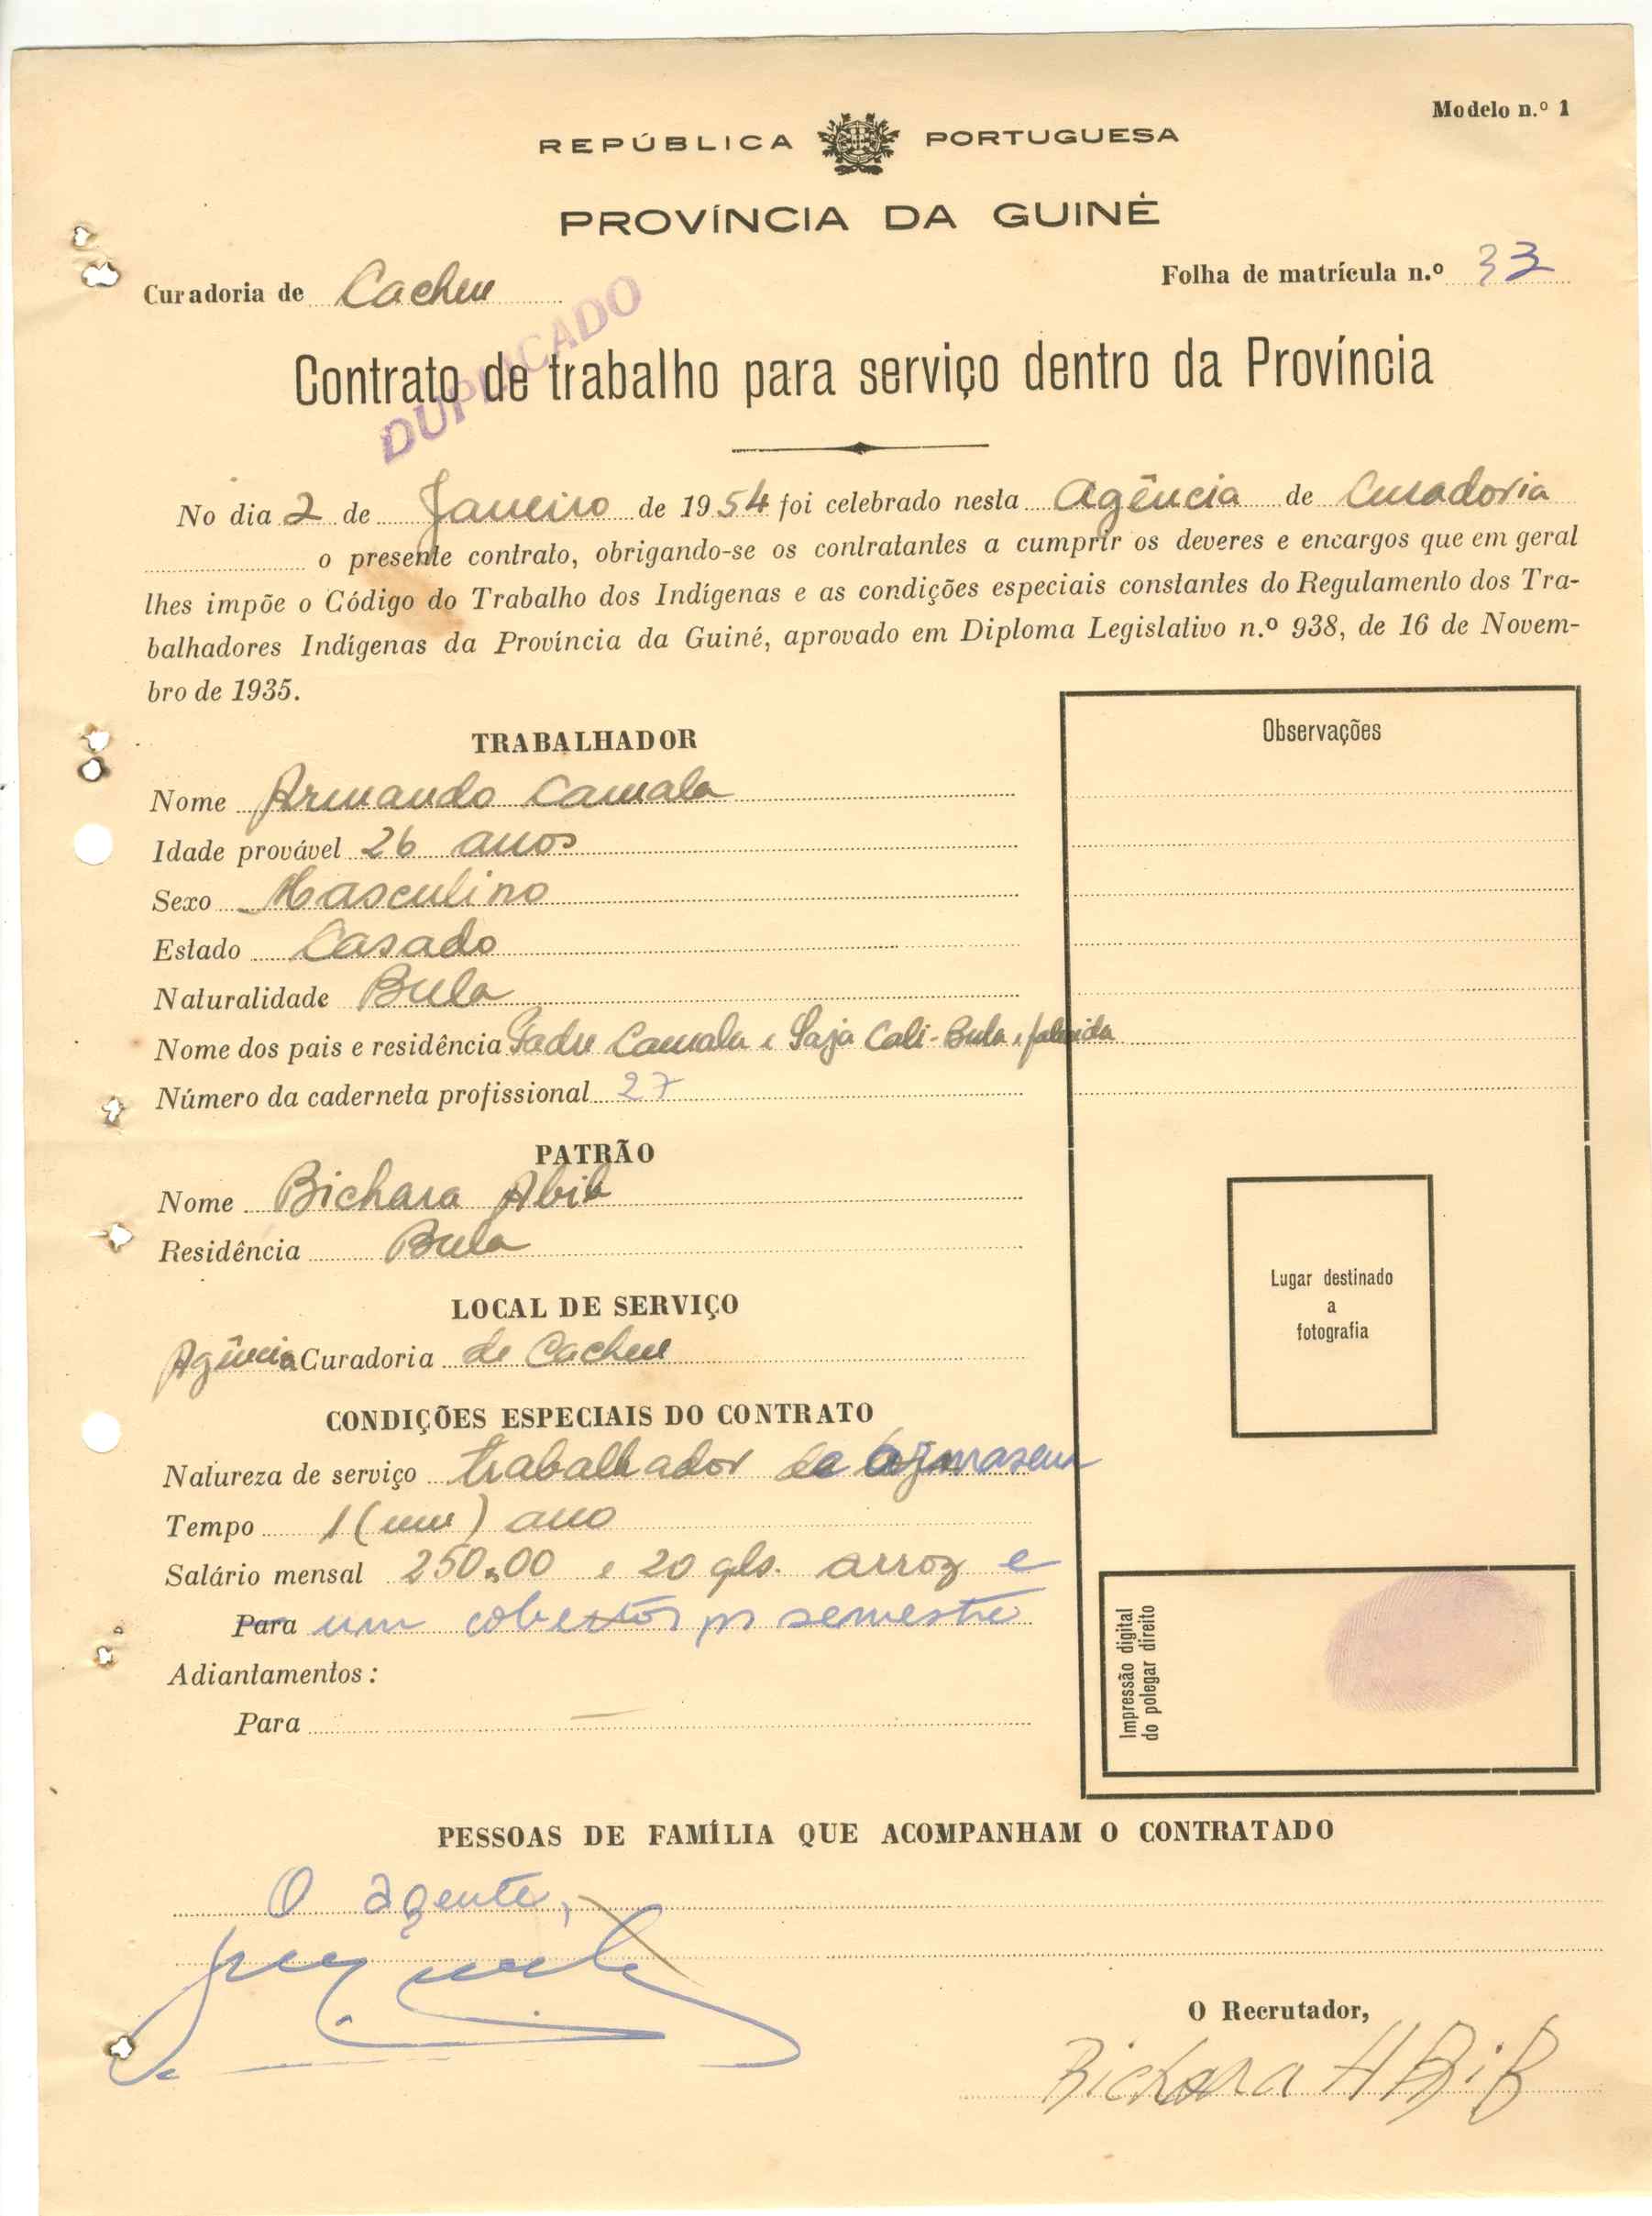 Modelo n.º 1
REPÚBLICA PORTUGUESA
PROVÍNCIA DA GUINÉ
Curadoria de Cacheu
Folha de matrícula n.º 33
DUPLICADO
Contrato de trabalho para serviço dentro da Província
No dia 2 de Janeiro de 1954 foi celebrado nesta Agência de Curadoria
o presente contrato, obrigando-se os contratantes a cumprir os deveres e encargos que em geral
lhes impõe o Código do Trabalho dos Indígenas e as condições especiais constantes do Regulamento dos Tra-
balhadores Indígenas da Província da Guiné, aprovado em Diploma Legislativo n.º 938, de 16 de Novem-
bro de 1935.
Observações
TRABALHADOR
Nome Armando Camala
Idade provável 26 anos
Sexo Masculino
Estado Casado
Naturalidade Bula
Nome dos pais e residência Camala e Saja Cali-Bula e falecida
Número da caderneta profissional 27
PATRÃO
Nome Bichara Abib
Residência Bula
Lugar destinado
a
fotografia
LOCAL DE SERVIÇO
Agência Curadoria de Cacheu
CONDIÇÕES ESPECIAIS DO CONTRATO
Natureza de serviço trabalhador de
Tempo 1 (um) ano
Salário mensal 250,00 e 20 qls. arroz e
Para um cobertor p/ semestre
Adiantamentos :
Para —
Impressão digital
do polegar direito
PESSOAS DE FAMÍLIA QUE ACOMPANHAM O CONTRATADO
O agente,
O Recrutador,
Bichara ABiB